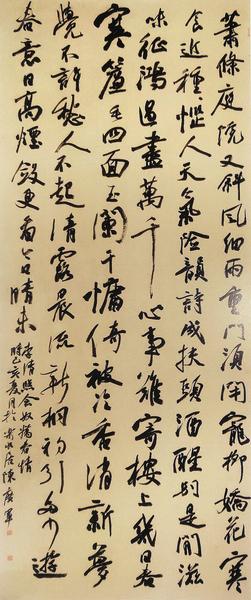 蕭條庭院又斜風細雨重門須閉寵柳嬌花寒
食近種種惱人天氣險韻詩成扶頭酒醒別是閒滋
味征鴻過盡萬千心事難寄樓上幾日春
寒簾垂四面玉闌干慵倚被冷香消新夢
覺不許愁人不起清露晨流新桐初引多少遊
春意日高煙斂更看今日晴未
李清照念奴嬌春情
時己亥夏月於 水居陳廣軍